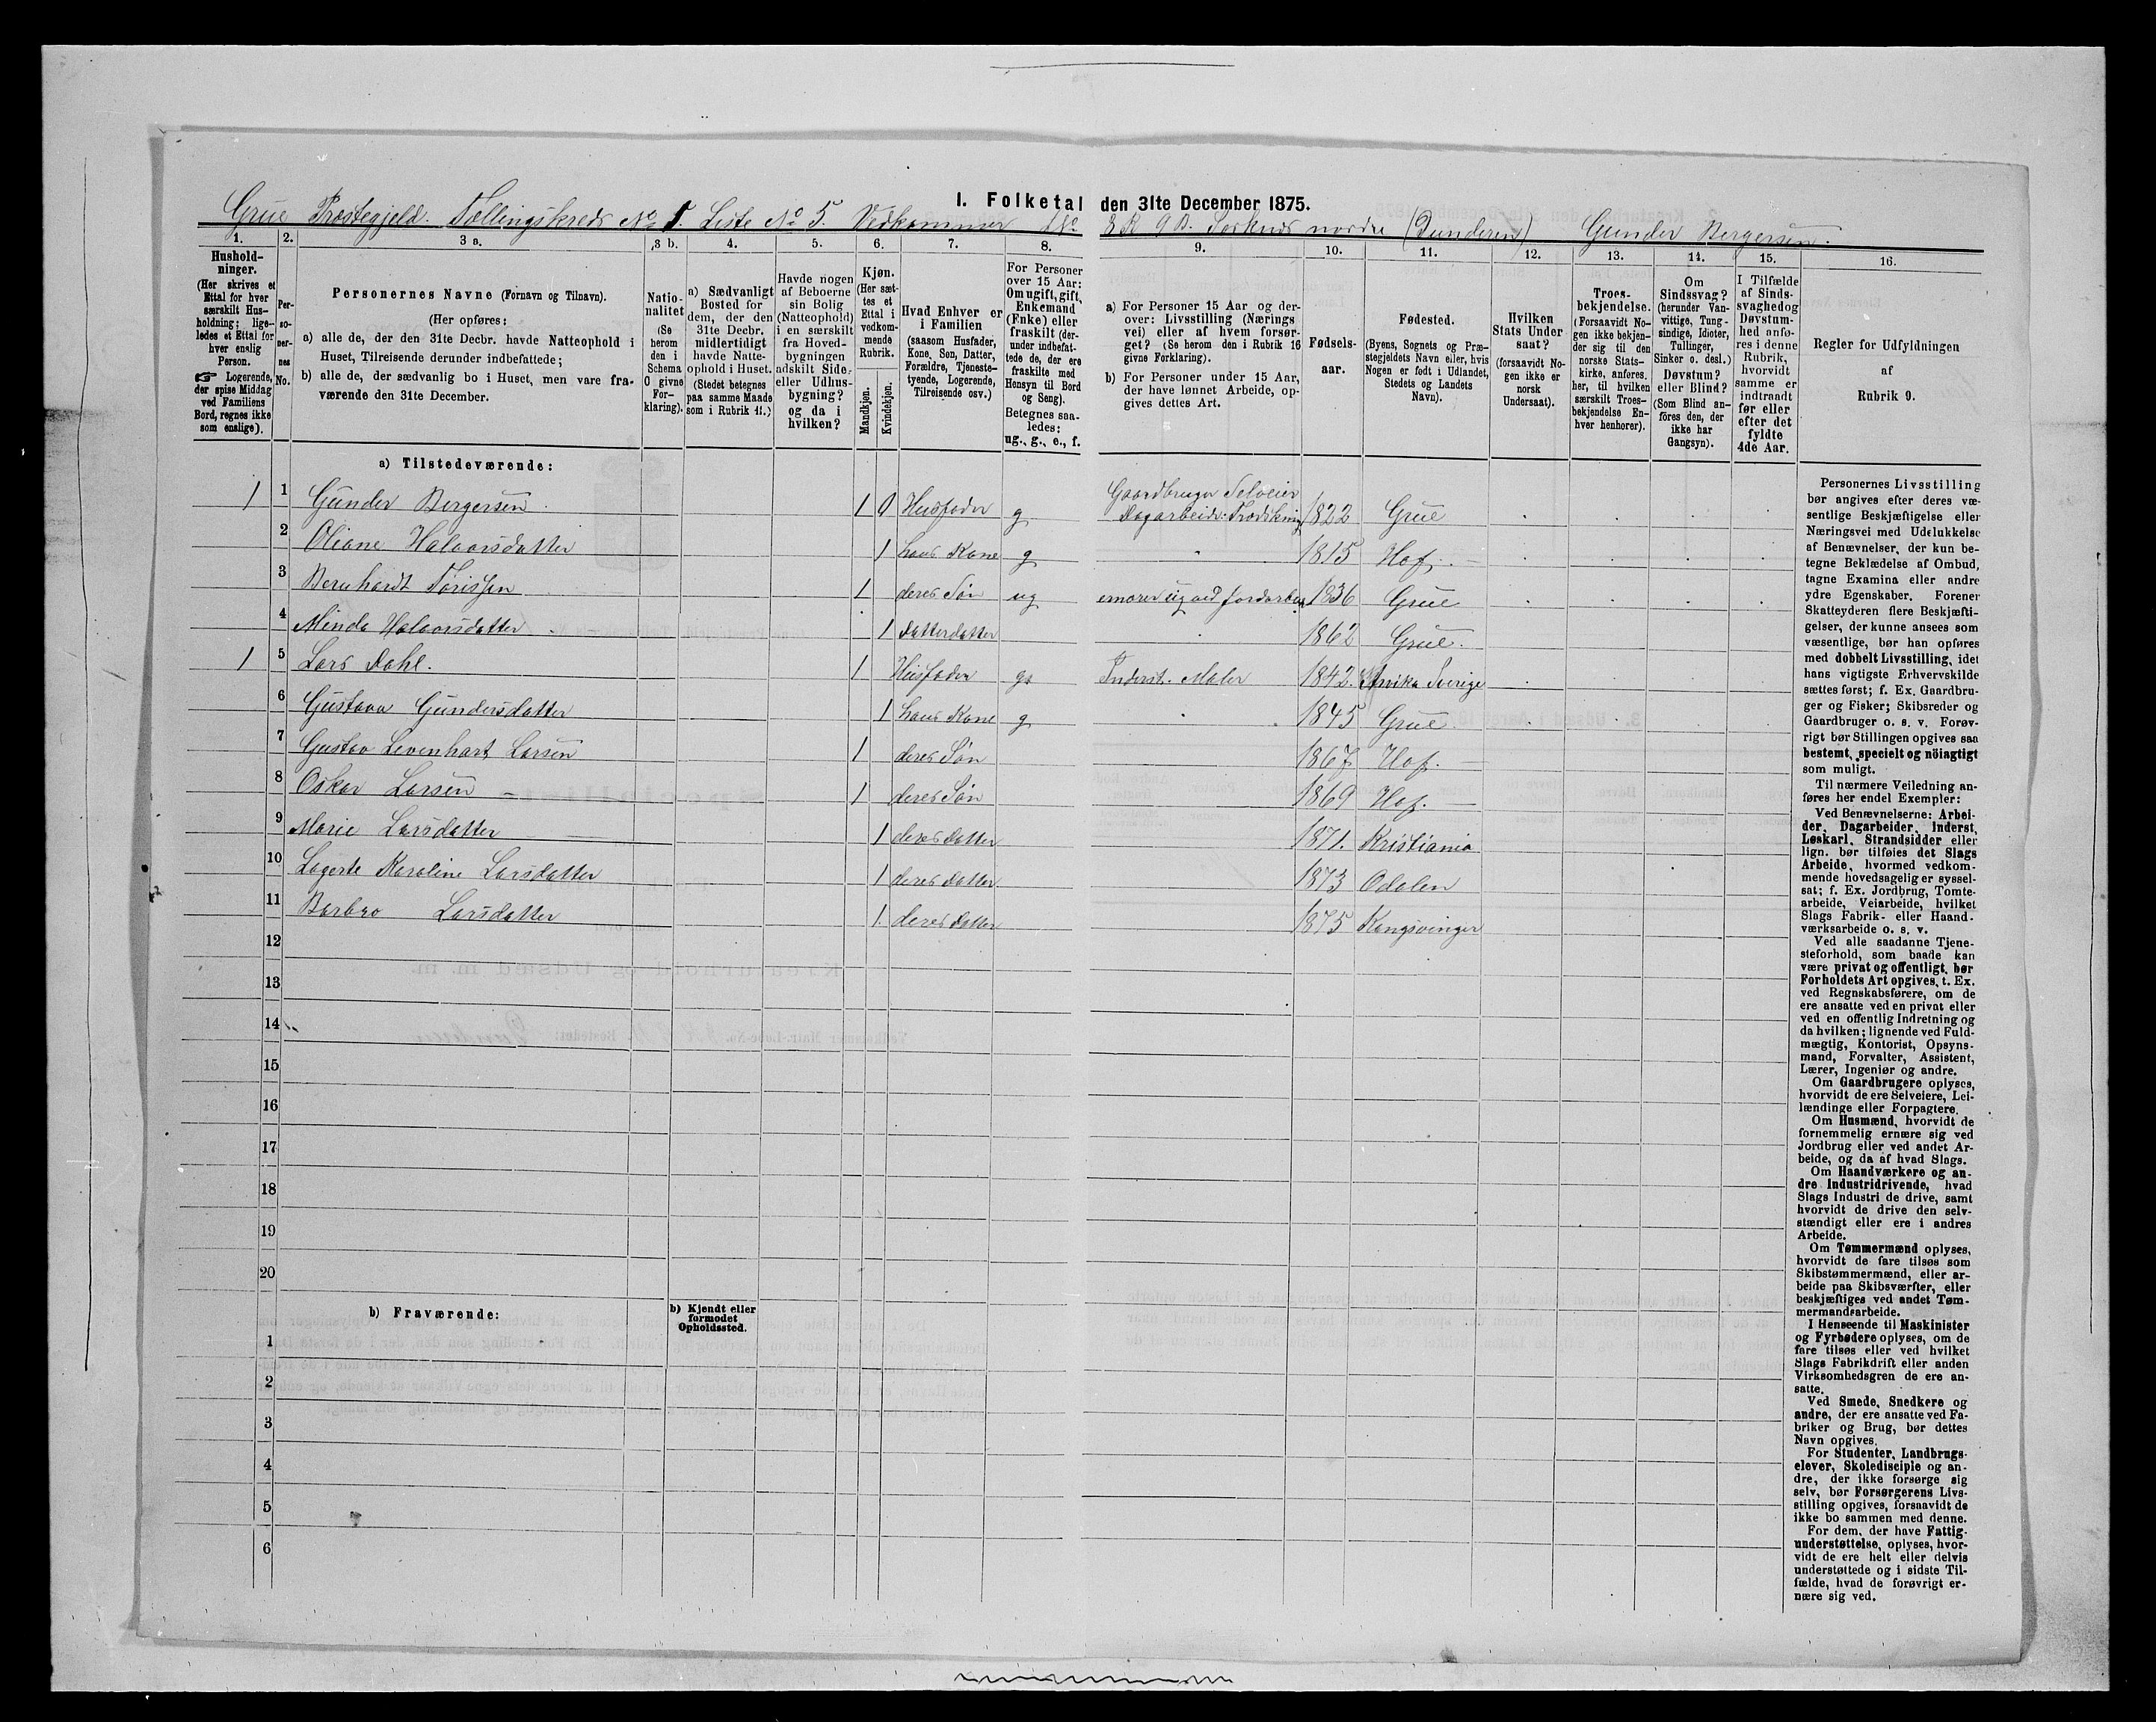 I. Folketal den 31te December 1875.
Grue Præstegjeld. Tællingskreds No 5. Liste No 5. Vedkommer No 8 R 9 B. Sorknes nordre (Dunderen) Gunder Bergersen.
1.
Hushold-
ninger.
(Her skrives et
Ettal for hver
særskilt Hus-
holdning; lige-
ledes et Ettal for
hver enslig
Person.
☞ Logerende,
der spise Middag
ved Familiens
Bord, regnes ikke
som enslige).
2.
Per-
so-
ner-
nes
No.
3 a.
Personernes Navne (Fornavn og Tilnavn).
(Her opføres:
a) alle de, der den 31te Decbr. havde Natteophold i
Huset, Tilreisende derunder indbefattede;
b) alle de, der sædvanlig bo i Huset, men vare fra-
værende den 31te December.
3 b.
Natio-
nalitet
(Se
herom
den i
Schema
O givne
For-
klaring).
4.
a) Sædvanligt
Bosted for
dem, der den
31te Decbr.
midlertidigt
havde Natte-
ophold i Huset.
(Stedet betegnes
paa samme Maade
som i Rubrik 11.)
5.
Havde nogen
af Beboerne
sin Bolig
(Natteophold)
i en særskilt
fra Hoved-
bygningen
adskilt Side-
eller Udhus-
bygning?
og da i
hvilken?
6.
Kjøn.
(Her sæt-
tes et
Ettal i
vedkom-
mende
Rubrik.
Mandkjøn.
Kvindekjøn.
7.
Hvad Enhver er
i Familien
(saasom Husfader,
Kone, Søn, Datter,
Forældre, Tjeneste-
tyende, Logerende,
Tilreisende osv.)
8.
For Personer
over 15 Aar:
Om ugift, gift,
Enkemand
(Enke) eller
fraskilt (der-
under indbefat-
tede de, der ere
fraskilte med
Hensyn til Bord
og Seng).
Betegnes saa-
ledes:
ug., g., e., f.
9.
a) For Personer 15 Aar og der-
over: Livsstilling (Nærings
vei) eller af hvem forsør-
get? (Se herom den i Rubrik 16
givne Forklaring).
b) For Personer under 15 Aar,
der have lønnet Arbeide, op-
gives dettes Art.
10.
Fødsels-
aar.
11.
Fødested.
(Byens, Sognets og Præ-
stegjeldets Navn eller, hvis
Nogen er født i Udlandet,
Stedets og Landets
Navn).
12.
Hvilken
Stats Under
saat?
(forsaavidt No-
gen ikke er
norsk
Undersaat).
13.
Troes-
bekjendelse.
(Forsaavidt No-
gen ikke bekjen-
der sig til den
norske Stats-
kirke, anføres
her, til hvilken
særskilt Troes-
bekjendelse En-
hver henhører).
14.
Om
Sindssvag?
(herunder Van-
vittige, Tung-
sindige, Idioter,
Tullinger,
Sinker o. desl.)
Døvstum?
eller Blind?
(Som Blind an-
føres den, der
ikke har
Gangsyn).
15.
I Tilfælde
af Sinds-
svaghed og
Døvstum-
hed anfø-
res i denne
Rubrik,
hvorvidt
samme er
indtraadt
før eller
efter det
fyldte
4de Aar.
16.
Regler for Udfyldningen
af
Rubrik 9.
a) Tilstedeværende:
1 1 Gunder Bergersen 1 0 Husfader g Gaardbruger Selveier
Dagarbeide: 1822 Grue
2 Oliane Halvorsdatter 1 hans Kone g 1815 Hof.
3 Bernhardt Torissen 1 deres Søn ug ernærer sig ved Jordarbeide 1836 Grue
4 Minda Halvorsdatter 1 Datterdatter 1862 Grue.
1 5 Lars Dahl. 1 Husfader g Inderst. Maler 1842. Arvika Sverige
6 Gustava Gundersdatter 1 hans Kone g 1845 Grue
7 Gustav Levenhart Larsen 1 deres Søn 1867 Hof.
8 Oskar Larsen 1 deres Søn 1869 Hof.
9 Marie Larsdatter 1 deres datter 1871. Kristiania
10 Lagerte Karoline Larsdatter 1 deres datter 1873 Odalen
11 Barbro Larsdatter 1. deres datter 1875 Kongsvinger
12
13
14
15
16
17
18
19
20
b) Fraværende:
b) Kjendt eller
formodet
Opholdssted.
1
2
3
4
5
6
Personernes Livsstilling
bør angives efter deres væ-
sentlige Beskjæftigelse eller
Næringsvei med Udelukkelse
af Benævnelser, der kun be-
tegne Beklædelse af Ombud,
tagne Examina eller andre
ydre Egenskaber. Forener
Skatteyderen flere Beskjæfti-
gelser, der kunne ansees som
væsentlige, bør han opføres
med dobbelt Livsstilling, idet
hans vigtigste Erhvervskilde
sættes først; f. Ex. Gaardbru-
ger og Fisker; Skibsreder og
Gaardbruger o. s. v. Forøv-
rigt bør Stillingen opgives saa
bestemt, specielt og nöiagtigt
som muligt.
Til nærmere Veiledning an-
føres her endel Exempler:
Ved Benævnelserne: Arbei-
der, Dagarbeider, Inderst,
Løskarl, Strandsidder eller
lign. bør tilføies det Slags
Arbeide, hvormed vedkom-
mende hovedsagelig er syssel-
sat; f. Ex. Jordbrug, Tomte-
arbeide, Veiarbeide, hvilket
Slags Fabrik- eller Haand-
værksarbeide o. s. v.
Ved alle saadanne Tjene-
steforhold, som baade kan
være privat og offentligt, bør
Forholdets Art opgives, t. Ex.
ved Regnskabsførere, om de
ere ansatte ved en privat eller
ved en offentlig Indretning og
da hvilken; lignende ved Fuld-
mægtig, Kontorist, Opsyns-
mand, Forvalter, Assistent,
Lærer, Ingeniør og andre.
Om Gaardbrugere oplyses,
hvorvidt de ere Selveiere, Lei-
lændinge eller Forpagtere.
Om Husmænd, hvorvidt de
fornemmelig ernære sig ved
Jordbrug eller ved andet Ar-
beide, og da af hvad Slags.
Om Haandværkere og an-
dre Industridrivende, hvad
Slags Industri de drive, samt
hvorvidt de drive den selv-
stændigt eller ere i andres
Arbeide.
Om Tømmermænd oplyses,
hvorvidt de fare tilsøs som
Skibstømmermænd, eller ar-
beide paa Skibsværfter, eller
beskjæftiges ved andet Tøm-
mermandsarbeide.
I Henseende til Maskinister
og Fyrbødere oplyses, om de
fare tilsøs eller ved hvilket
Slags Fabrikdrift eller anden
Virksomhedsgren de ere an-
satte.
Ved Smede, Snedkere og
andre, der ere ansatte ved Fa-
briker og Brug, bør dettes
Navn opgives.
For Studenter, Landbrugs-
elever, Skoledisciple og an-
dre, der ikke forsørge sig
selv, bør Forsørgerens Livs-
stilling opgives, forsaavidt de
ikke bo sammen med denne.
For dem, der have Fattig-
understøttelse, oplyses, hvor-
vidt de ere helt eller delvis
understøttede og i sidste Til-
fælde, hvad de forøvrigt er-
nære sig ved.